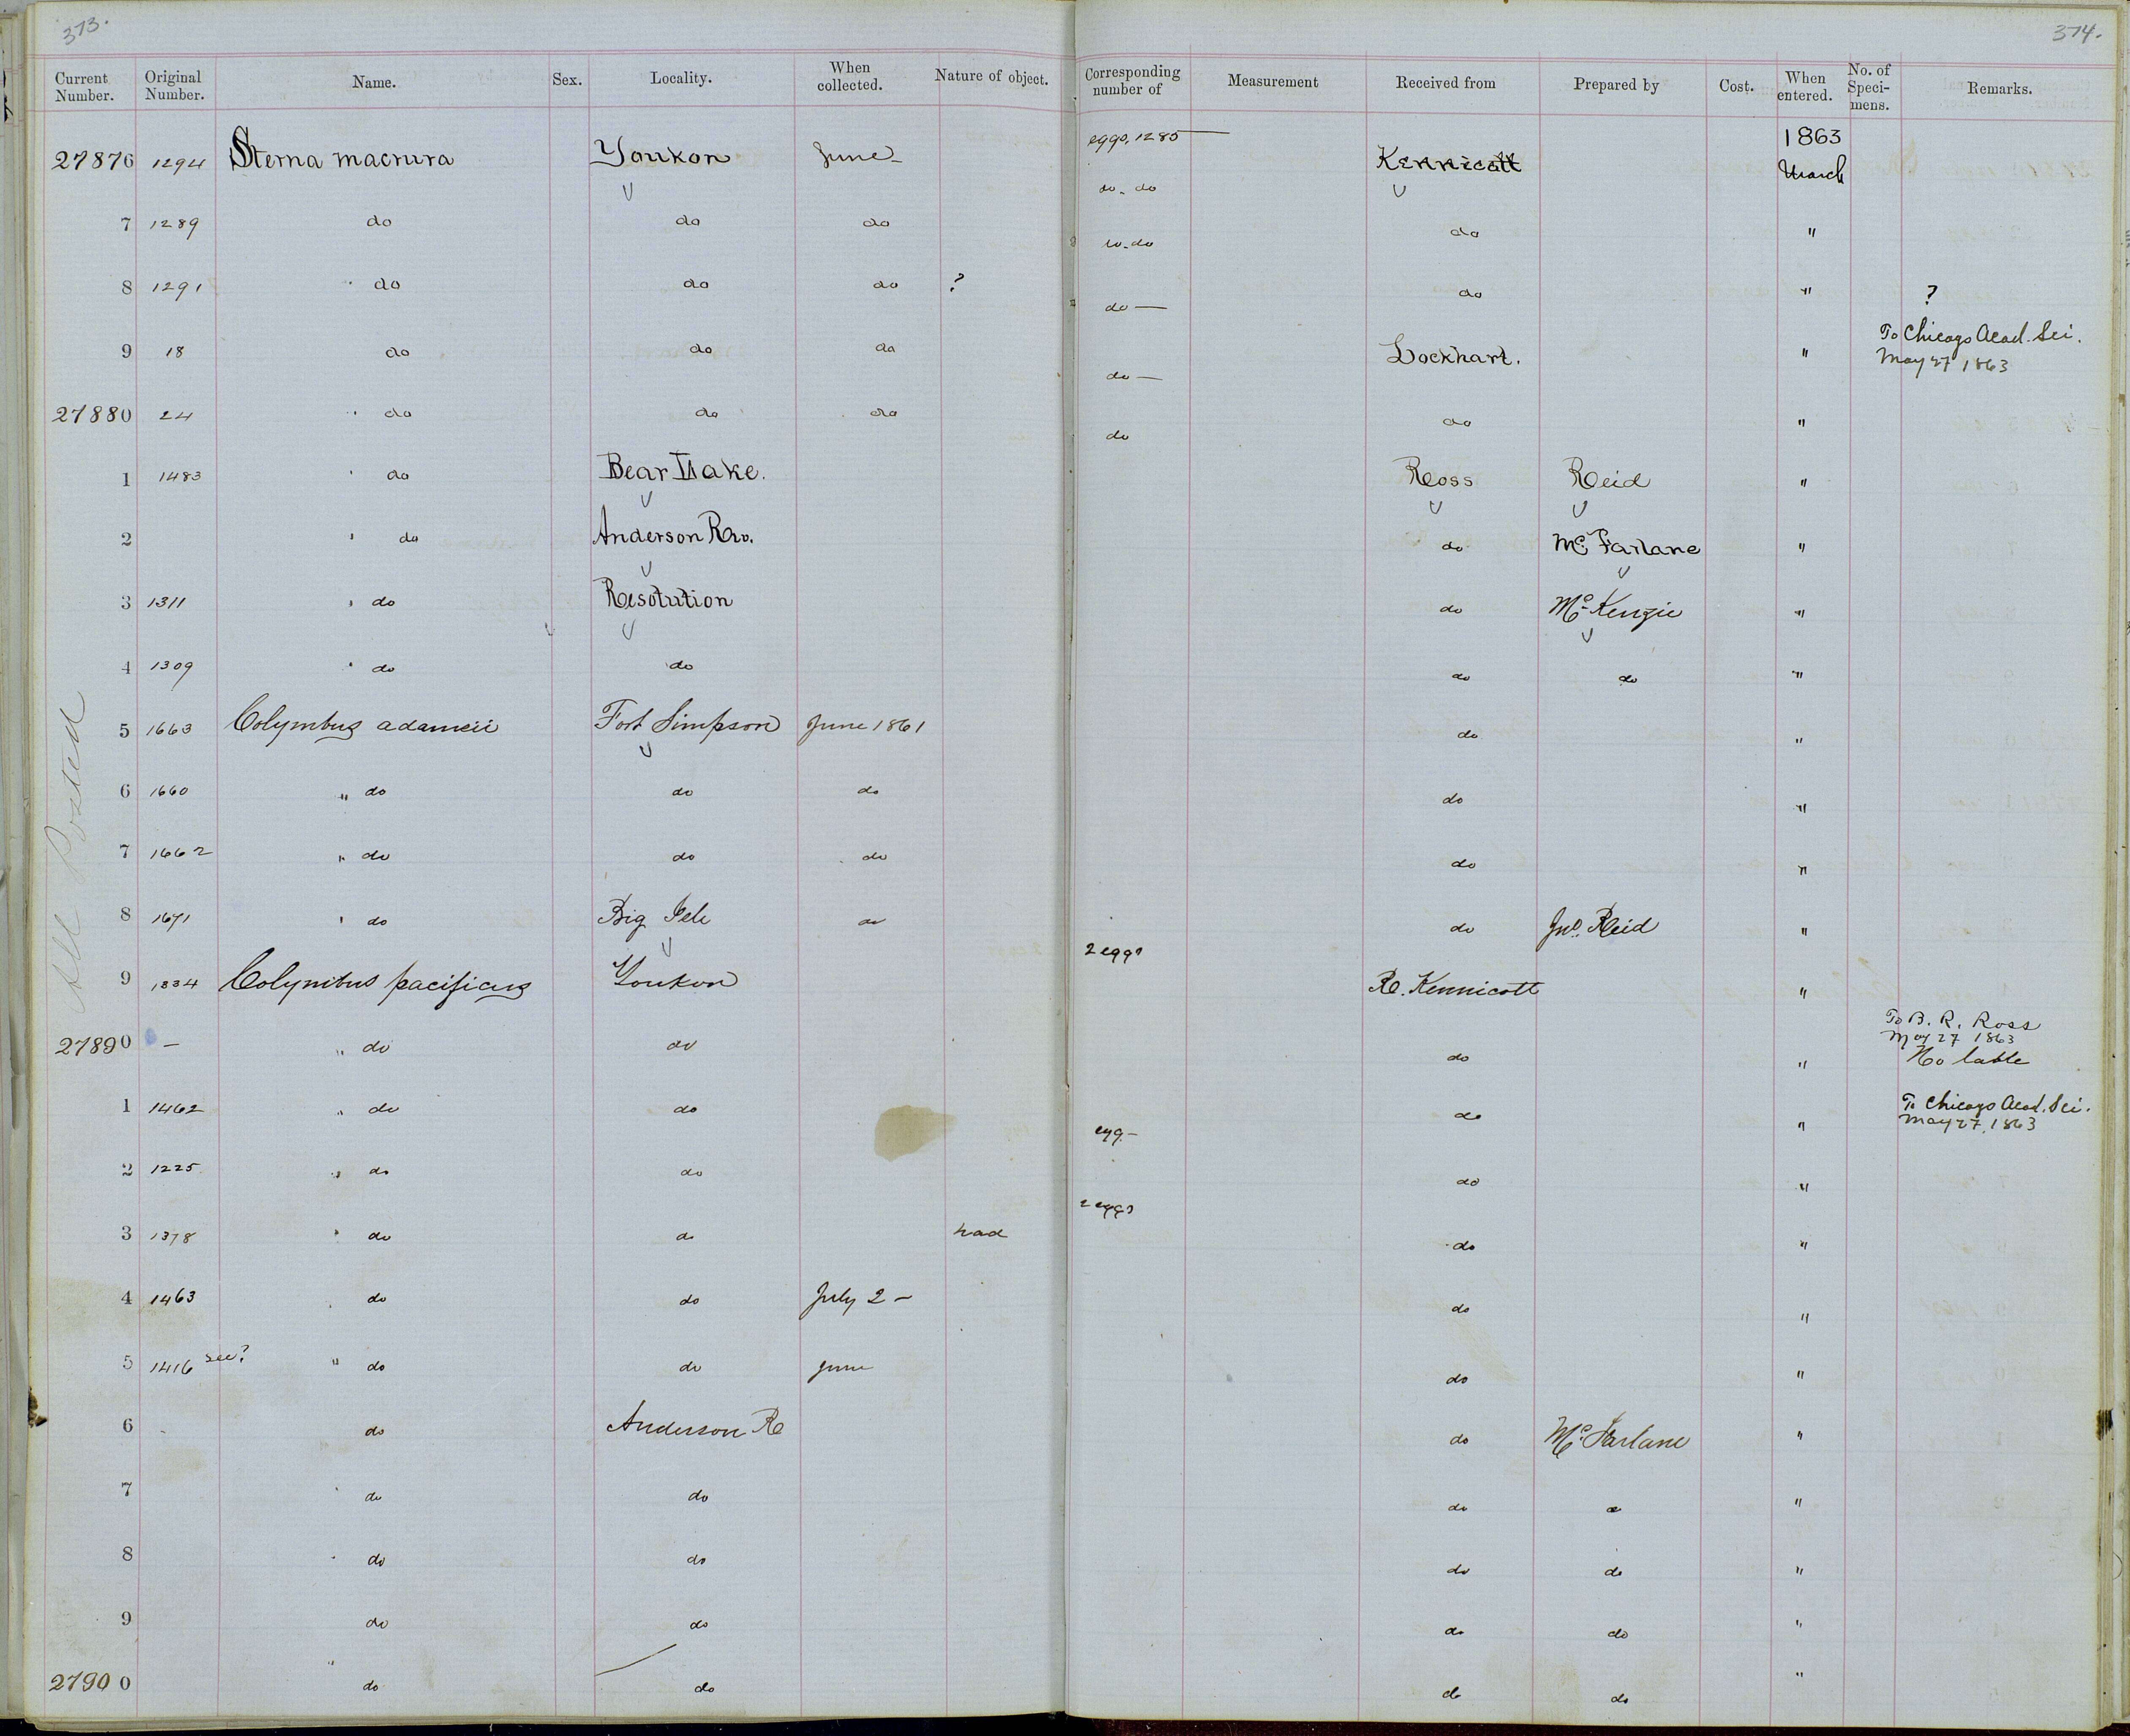 373.
374.
Current Number. Original Number. Name. Sex. Locality. When collected. Nature of object. Corresponding number of Measurement Received from Prepared by Cost. When entered. No. of Speci-mens. Remarks.
27876 1294 Sterna macrura Youkon June eggs, 1285 Kennicott 1863 March
do. do
7 1289 do do do do do "
8 1291 do do do ? do — do " ?
9 18 do do do do — Lockhart. " To Chicago Acad. Sci. May 27 1863
27880 24 do do do do do "
1 1483 do Bear Lake. Ross Reid "
2 do Anderson Riv. do McFarlane "
3 1311 do Resolution do McKenzie "
4 1309 do do do do "
5 1663 Colymbus adamsii Fort Simpson June 1861 do "
6 1660 " do do do do "
7 1662 " do do do do "
8 1671 " do Big Isle do do Jno. Reid "
9 1334 Colymbus pacificus Youkon 2 eggs R. Kennicott "
27890 — " do do do " To B. R. Ross May 27 1863 No lable
1 1462 " do do do " To Chicago Acad. Sci. May 27, 1863
2 1225 " do do egg — do "
3 1378 " do do had 2 eggs do "
4 1463 do do July 2 — do "
5 1416 see? " do do June do "
6 do Anderson R do McFarlane "
7 do do do do "
8 do do do do "
9 do do do do "
27900 " do do do do "
All Posted